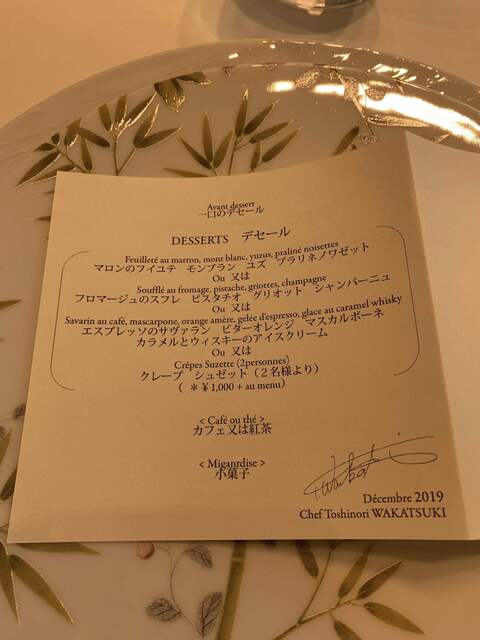 Avant dessert
一口のデセール
DESSERTS デセール
Feuilleté au marron, mont blanc, yuzus, praliné noisettes
マロンのフイユテ モンブラン ユズ プラリネノワゼット
Ou 又は
Soufflé au fromage, pistache, griottes, champagne
フロマージュのスフレ ピスタチオ グリオット シャンパーニュ
Ou 又は
Savarin au café, mascarpone, orange amère, gelée d'espresso, glace au caramel whisky
エスプレッソのサヴァラン ビターオレンジ マスカルポーネ
カラメルとウィスキーのアイスクリーム
Ou 又は
Crêpes Suzette (2personnes)
クレープ シュゼット（２名様より）
( ＊￥1,000 + au menu)
< Café ou thé >
カフェ又は紅茶
< Miganrdise >
小菓子
Décembre 2019
Chef Toshinori WAKATSUKI